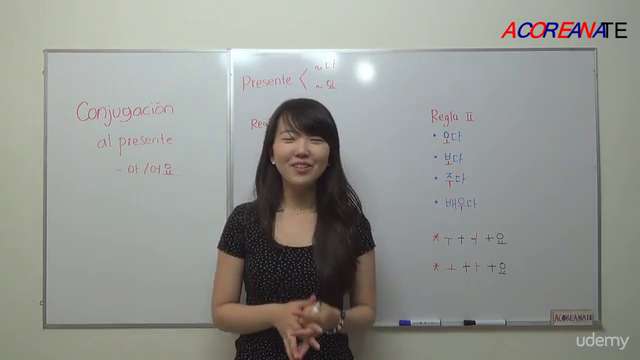 ACOREANATE
Conjugación
al presente
- 아/어요
Presente <
~다
~요
Regla II
• 오다
• 보다
• 주다
• 배우다
* ㅜ + ㅓ + 요
* ㅗ + ㅏ + 요
ACOREANATE
udemy